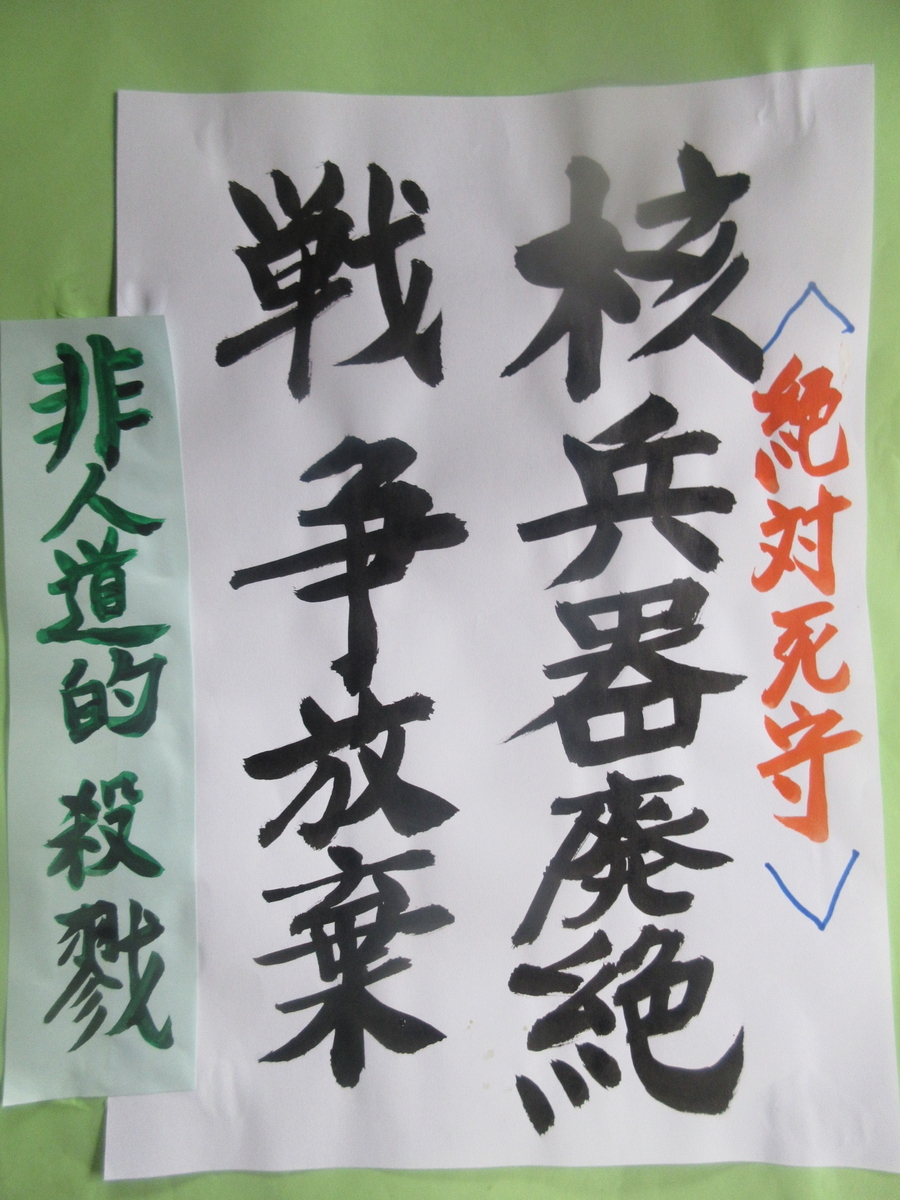 〈絶対死守〉
核兵器廃絶
戦争放棄
非人道的 殺戮